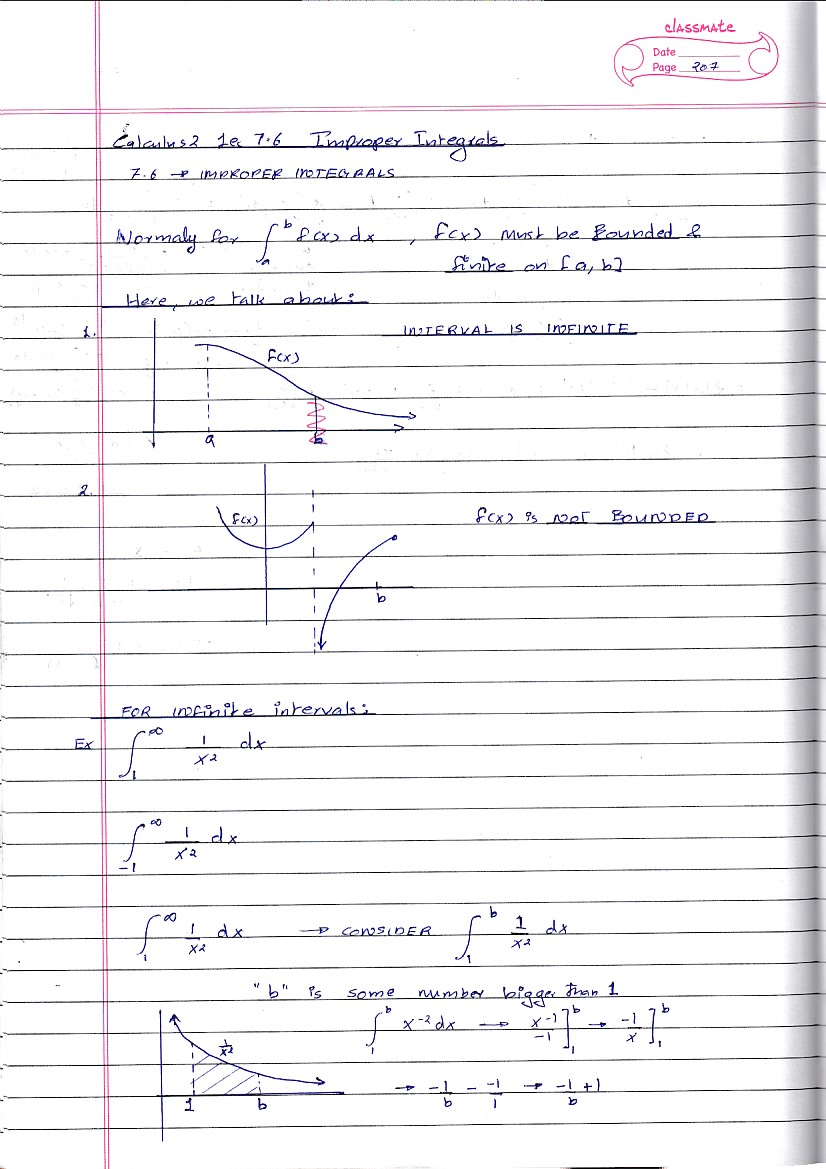 classmate
Date
Page 207
Calculus 2 lec 7.6 Improper Integrals
7.6 → IMPROPER INTEGRALS
Normaly for ∫_a^b f(x) dx , f(x) must be Bounded &
finite on [a, b]
Here, we talk about:
1. INTERVAL IS INFINITE
f(x)
a b
2.
f(x) f(x) is NOT BOUNDED
b
FOR infinite intervals:
Ex ∫_1^∞ 1/x² dx
∫_-1^∞ 1/x² dx
∫_1^∞ 1/x² dx → CONSIDER ∫_1^b 1/x² dx
"b" is some number bigger than 1
1/x² ∫_1^b x⁻² dx → x⁻¹/-1 ]_1^b → -1/x ]_1^b
1 b → -1/b - -1/1 → -1/b + 1